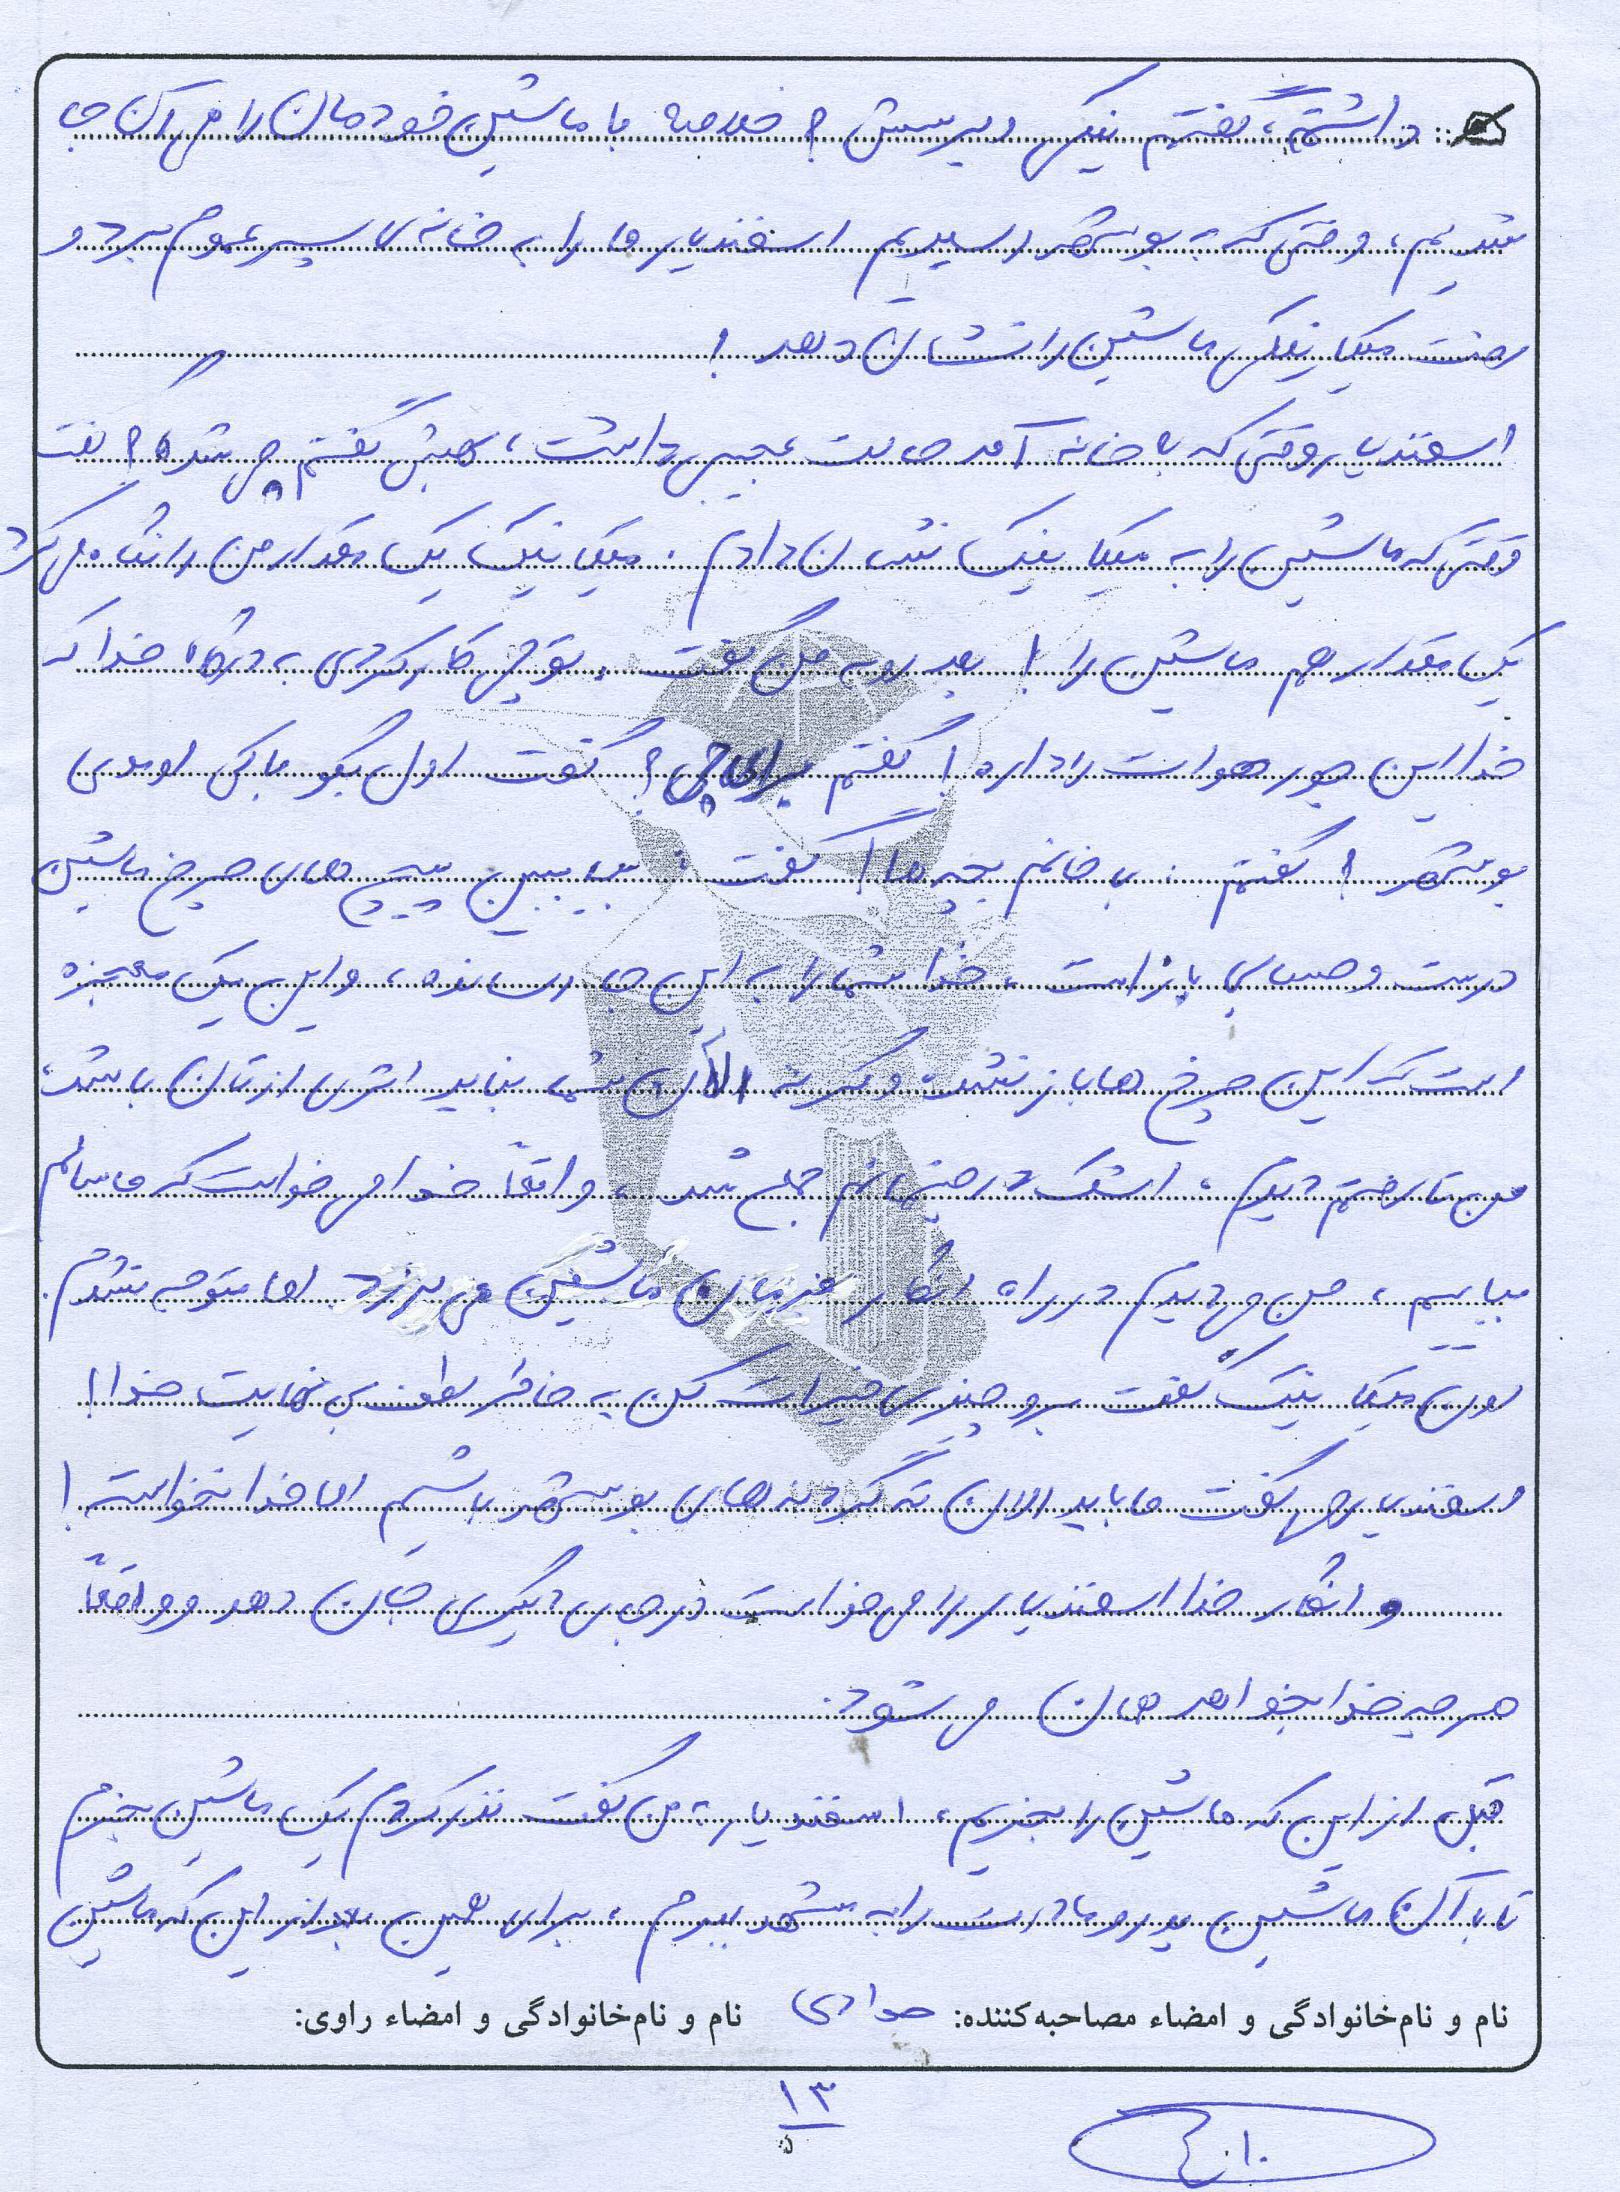 داشتم، گفتم نیکی و پرسش؟ خلاصه با ماشین خودمان راهی آن جا
شدیم، وقتی که به بوشهر رسیدیم اسفندیار ما را به خانه‌ی پسر عموم برد و
رفت میکانیکی ماشین را نشان دهد!
اسفندیار وقتی که با خانه آمد حالت عجیبی داشت، بهش گفتم چی شده؟ گفت
وقتی که ماشین را به میکانیک نشان دادم. میکانیک یک مقدار من را نگاه می‌کرد
یک مقدار هم ماشین را! بعد رو به من گفت، تو چی کار کردی به درگاه خدا که
خدا این جور هوات را داره! گفتم برای چی؟ گفت اول بگو با کی اومدی
بوشهر! گفتم: با خانم بچه ها! گفت: بیا ببین پیچ های چرخ ماشین
درست و حسابی باز است، خدا شما را به این جا رسانده، و این یک معجزه
است که این چرخ ها باز نشده وگرنه الآن شما نباید اثری ازتان باشد،
من تا رفتم دیدم، اشک در چشمانم جمع شد، واقعاً خدا می خواست که ما سالم
بیاییم، من می دیدم در راه انگار فرمان ماشین می لرزد اما متوجه نشدم.
اون میکانیک گفت برو چیزی خیرات کن به خاطر لطف بی نهایت خدا!
اسفندیار هی گفت ما باید الان ته گردنه های بوشهر باشیم اما خدا نخواست!
و انگار خدا اسفندیار را می خواست در جای دیگری جان دهد و واقعاً
هر چه خدا بخواهد همان می شود.
قبل از این که ماشین را بخریم، اسفندیار به من گفت نذر کردم یک ماشین بخرم
تا با آن ماشین پدر و مادرت را به مشهد ببرم، برای همین بعد از این که ماشین
نام و نام‌خانوادگی و امضاء مصاحبه‌کننده: جوادی نام و نام‌خانوادگی و امضاء راوی:
۱۳